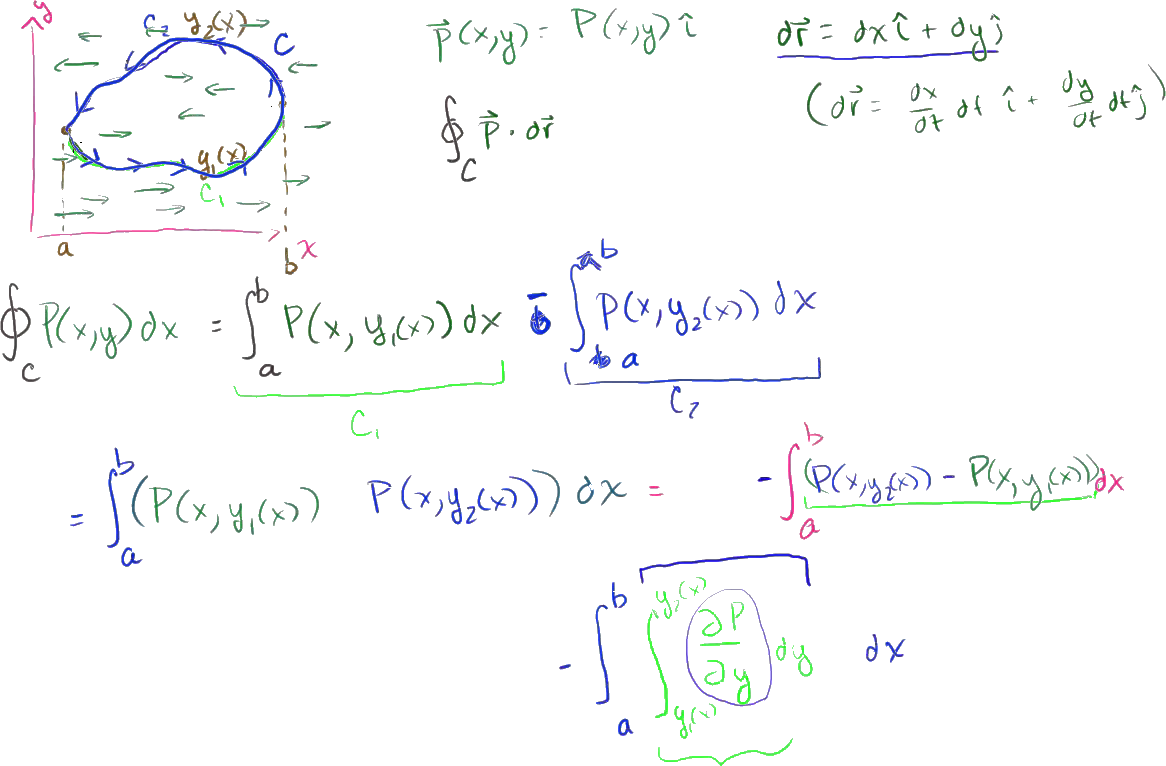 y
C₂ y₂(x)
C
y₁(x)
C₁
a
b
x
P⃗(x,y) = P(x,y) î
dr⃗ = dx î + dy ĵ
(dr⃗ = dx/dt dt î + dy/dt dt ĵ)
∮_C P⃗ · dr⃗
∮_C P(x,y) dx = ∫_a^b P(x, y₁(x)) dx - ∫_a^b P(x, y₂(x)) dx
C₁
C₂
= ∫_a^b (P(x, y₁(x)) P(x, y₂(x))) dx = - ∫_a^b (P(x,y₂(x)) - P(x,y₁(x))) dx
- ∫_a^b ∫_{y₁(x)}^{y₂(x)} ∂P/∂y dy dx